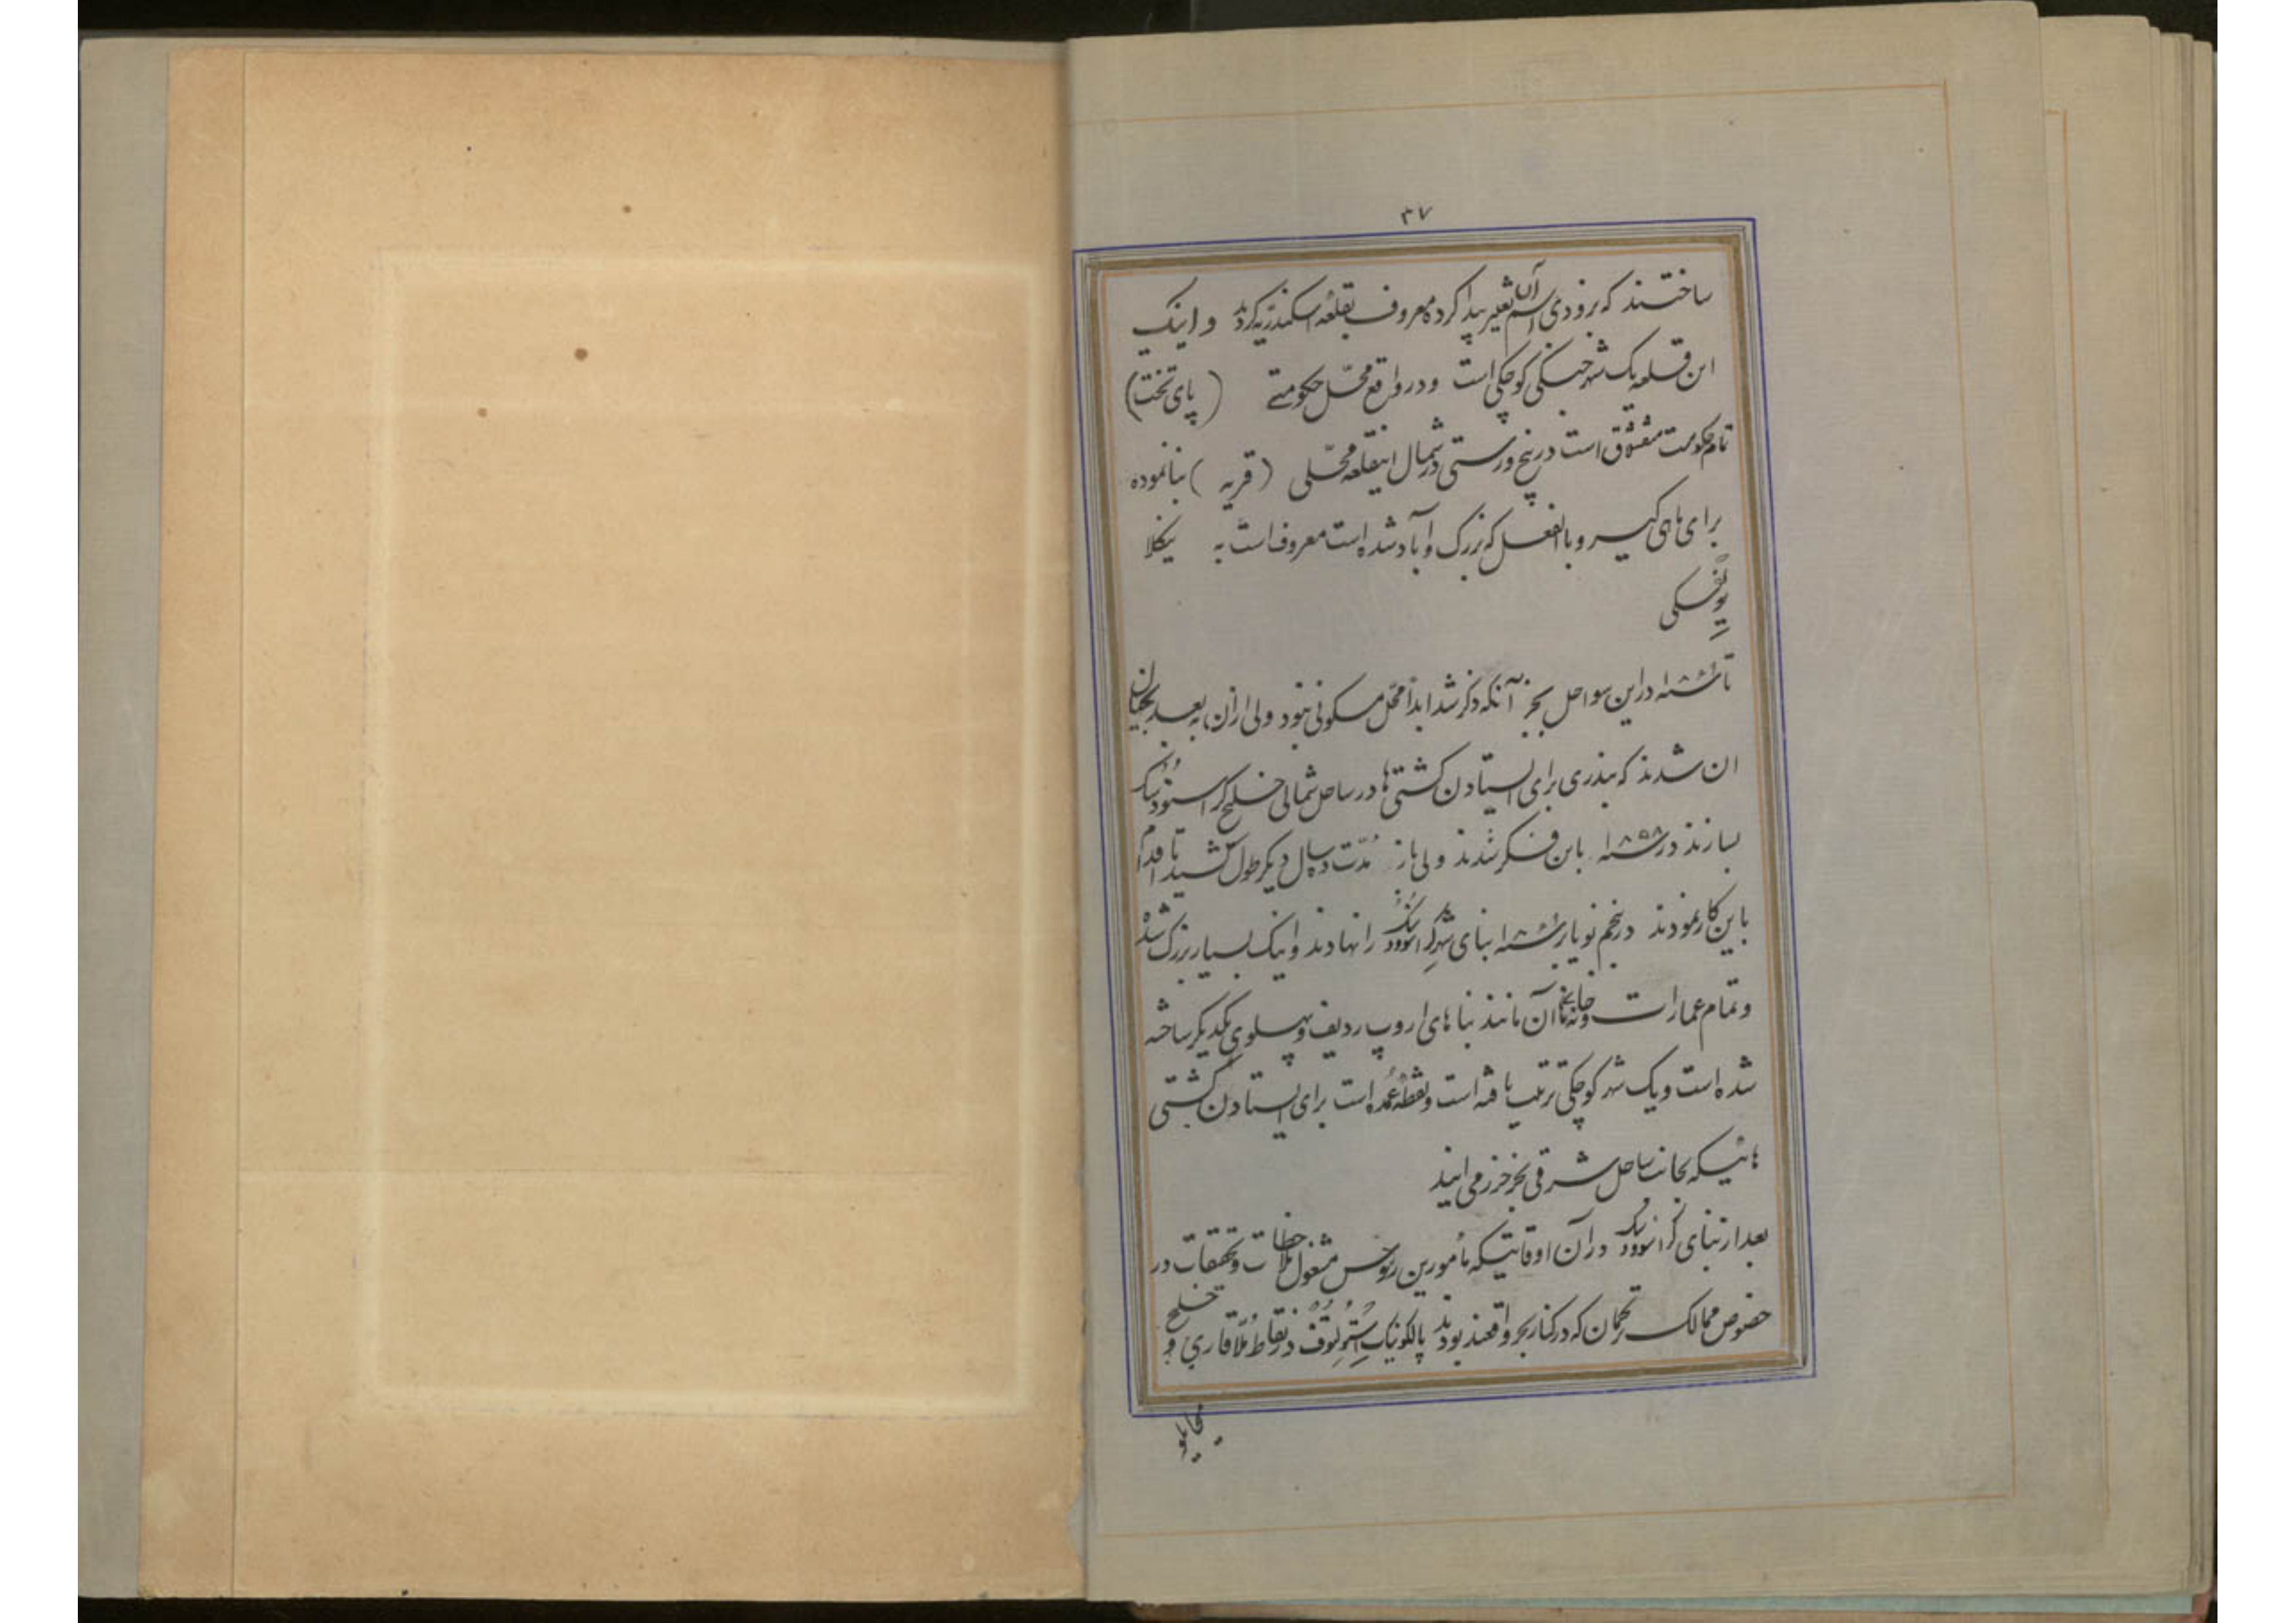 ۳۷
ساختند که بزودی اسم آن تغییر پیدا کرده معروف بقلعه اسکندریه کردید و اینک
این قلعه یک شهر جنگی کوچکی است و در واقع محل حکومتی (پای تخت)
تمام حکومت منقشلاق است در پنج ورستی در شمال اینقلعه محلی (قریه) بنا نموده
برای ماهی گیر و بالفعل که بزرک و آباد شده است معروف است به نیکلا
یوفسکی
تا سنه در این سواحل بجز آنکه ذکر شد ابداً محل مسکونی نبود ولی از ان به بعد بخیال
ان شدند که بندری برای ایستادن کشتی ها در ساحل شمالی خلیج کراسنودسک
بسازند در سنه ۱۸۵۸ باین فکر شدند ولی باز مدت ده سال دیکر طول کشید تا اقدام
باین کار نمودند در پنجم نویابر سنه بنای شهر کراسنودسک را نهادند و اینک بسیار بزرک شده
و تمام عمارات و خانهای آن مانند بناهای اروپ ردیف و پهلوی یکدیکر ساخته
شده است و یک شهر کوچکی ترتیب یافته است و نقطه عمده است برای ایستادن کشتی
هائیکه بجانب ساحل شرقی بحر خزر می ایند
بعد از بنای کراسنودسک در آن اوقاتیکه مأمورین روس مشغول ملاحظات و تحقیقات در
خصوص ممالک ترکمان که در کنار بحر واقعند بودند پالکونیک استولتوف در نقاط ملا قاری و خلیج